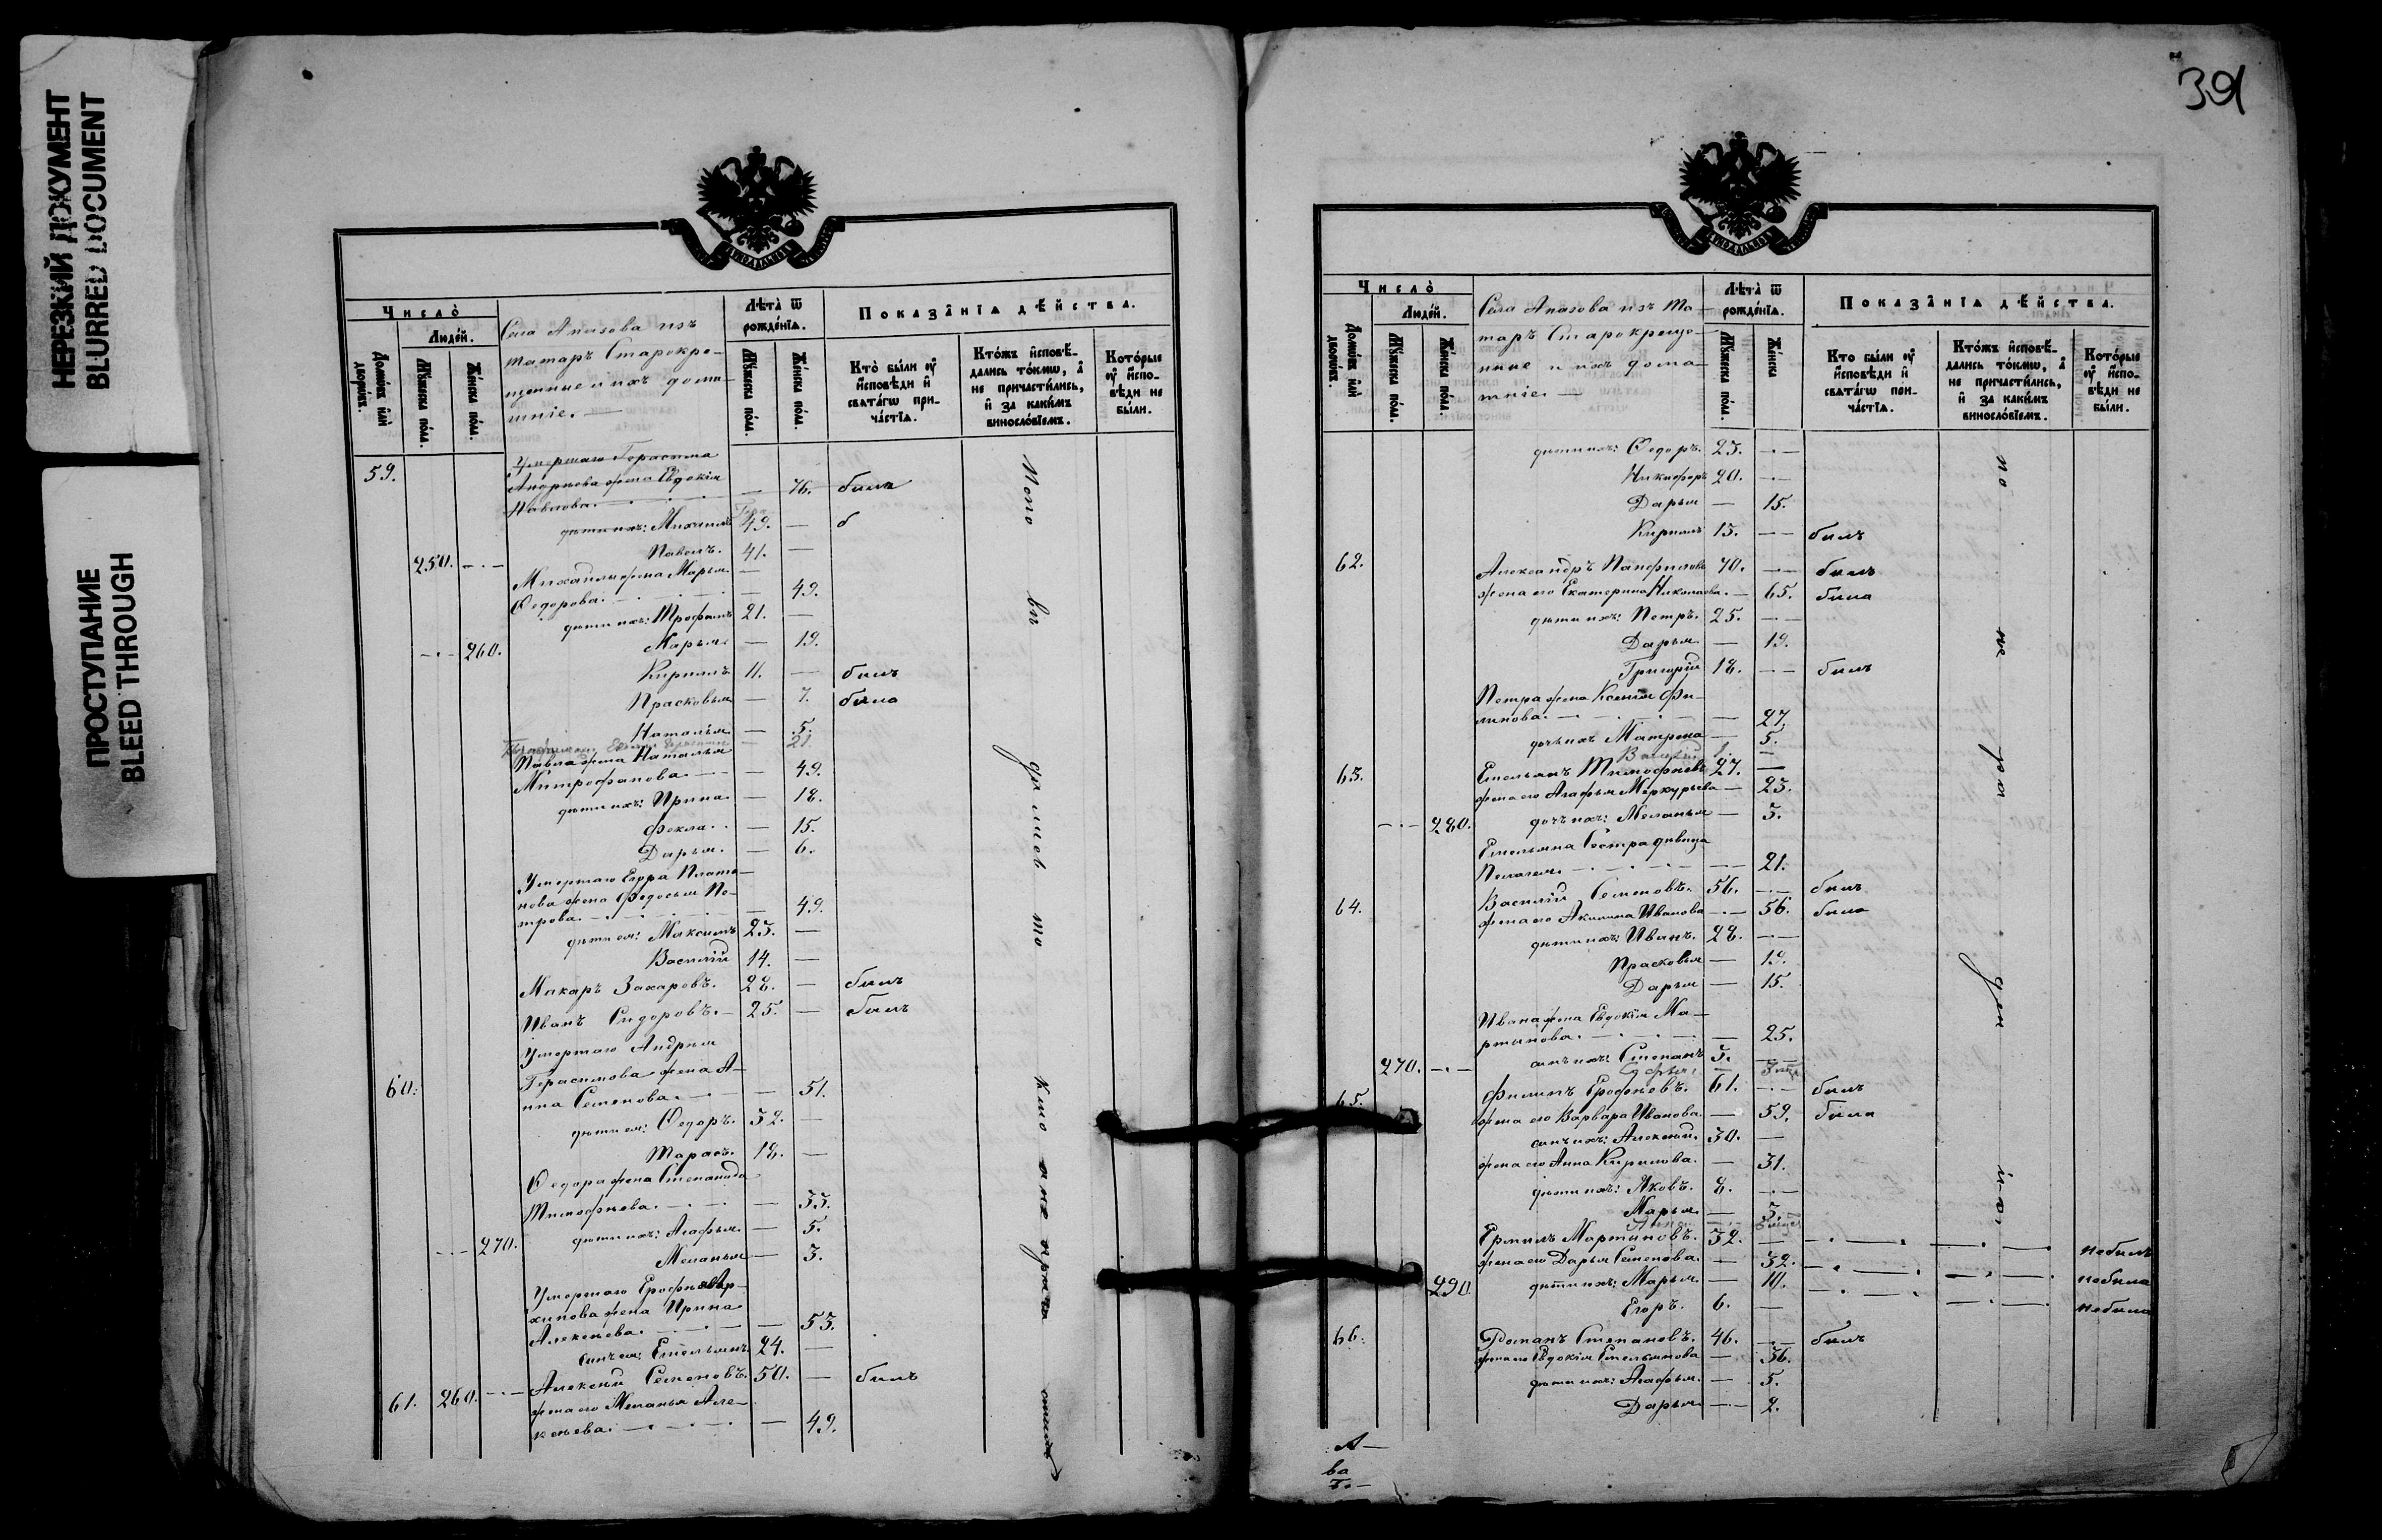 НЕРЕЗКИЙ ДОКУМЕНТ
BLURRED DOCUMENT
ПРОСТУПАНИЕ
BLEED THROUGH
Число̀
Людей.
Домѡвъ илѝ дворѡвъ.
Мꙋжеска пола.
Женска пола.
Села Апазова изъ
татаръ Старокре-
щенные и ихъ дома-
шніе. —
Лѣта̀ ѿ
рожденїѧ.
Мꙋжеска пола.
Женска пола.
Показанїѧ дѣйства.
Кто̀ были ᲂу҆
исповѣди и
свѧтагѡ при-
частїѧ.
Ктожъ исповѣ-
дались токмѡ, а
не причастились,
и за какимъ
винословїемъ.
Которые
ᲂу҆ испо-
вѣди не
были.
59. Умершаго Герасима
Андреева жена Евдокія
Павлова. — 76. была
дѣти ихъ: Михаилъ 49. — б
Павелъ. 41. —
250. — Михаила жена Марья
Ѳедорова. — 49.
дѣти ихъ: Трофимъ 21. —
260. Марья. — 19.
Кирилъ 11. — былъ
Прасковья — 7. была
Наталья — 5.
21.
Павла жена Наталья
Митрофанова. — 49.
дѣти ихъ: Ирина. — 18.
Фекла. — 15.
Дарья. — 6.
Умершаго Егора Плато-
нова жена Федосья Пе-
трова. — 49.
дѣти ея: Максимъ 23. —
Василій 14. —
Макаръ Захаровъ. 28. — былъ
Иванъ Сидоровъ. — 25. — былъ
Умершаго Андрея
60. Герасимова жена А-
нна Семенова. — 51.
дѣти ея: Ѳедоръ. 32. —
Тарасъ. 18. —
Ѳедора жена Степанида
Тимофеева. — 33.
270. дѣти ихъ: Агафья. — 5.
Меланья — 3.
Умершаго Ерофея Ар-
хипова жена Ирина
Алексѣева. — 53.
сынъ ея: Емельянъ. 24. —
61. 260. — Алексѣй Семеновъ. 50. — былъ
жена его Меланья Але-
ксѣева. — 49.
391
Число̀
Людей.
Домѡвъ илѝ дворѡвъ.
Мꙋжеска пола.
Женска пола.
Села Апазова изъ та-
таръ Старокреще-
нные и ихъ дома-
шніе. —
Лѣта̀ ѿ
рожденїѧ.
Мꙋжеска пола.
Женска
Показанїѧ дѣйства.
Кто были ᲂу҆
исповѣди и
свѧтагѡ при-
частїѧ.
Ктожъ исповѣ-
дались токмѡ, а
не причастились,
и за какимъ
винословїемъ.
Которые
ᲂу҆ испо-
вѣди не
были.
дѣти ихъ: Ѳедоръ. 23. —
Никифоръ 20. —
Дарья — 15.
Кирилъ 13. — былъ
62. Александръ Панфиловъ 70. — былъ
жена его Екатерина Николаева. — 65. была
дѣти ихъ: Петръ. 25. —
Дарья. — 19.
Григорій 18. — былъ
Петра жена Ксенія Фи-
липова. — 27.
дочь ихъ Матрена — 5.
Василій 1. —
63. Емельянъ Тимофѣевъ 27. —
жена его Агафья Меркурьева — 23.
280. дочь ихъ: Меланья — 3.
Емельяна Сестра дѣвица
Пелагея — 21.
64. Василій Семеновъ. 56. — былъ
жена его Акилина Иванова — 56. была
дѣти ихъ: Иванъ. 28. —
Прасковья — 19.
Дарья — 15.
Ивана жена Евдокія Ма-
ртынова. — 25.
270. — сынъ ихъ: Степанъ 3. —
65. Филипъ Ерофѣевъ. 61. — былъ
жена его Варвара Иванова. — 59. была
сынъ ихъ: Алексѣй. 30. —
жена его Анна Кирилова. — 31.
дѣти ихъ: Яковъ. 8. —
Марья — 5.
Ермилъ Мартыновъ. 32. — небылъ
жена его Дарья Семенова. — 32. — небыла
290. дѣти ихъ: Марья. — 10. — небыла
Егоръ. 6. —
66. Романъ Степановъ. 46. — былъ
жена его Евдокія Емельянова — 36.
дѣти ихъ: Агафья. — 5.
Дарья — 2.
А—
ва